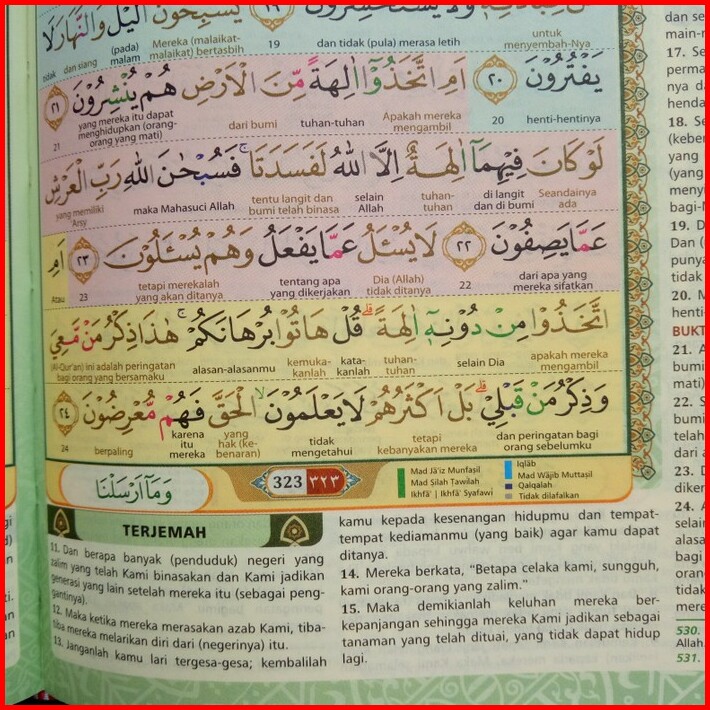 وَلَا يَسْتَحْسِرُوْنَ ١٩ يُسَبِّحُوْنَ الَّيْلَ وَالنَّهَارَ لَا
untuk menyembah-Nya dan tidak (pula) merasa letih 19 Mereka (malaikat-malaikat) bertasbih (pada) malam dan siang tidak
يَفْتُرُوْنَ ٢٠ اَمِ اتَّخَذُوْٓا اٰلِهَةً مِّنَ الْاَرْضِ هُمْ يُنْشِرُوْنَ ٢١
henti-hentinya 20 Apakah mereka mengambil tuhan-tuhan dari bumi yang mereka itu dapat menghidupkan (orang-orang yang mati) 21
لَوْ كَانَ فِيْهِمَآ اٰلِهَةٌ اِلَّا اللّٰهُ لَفَسَدَتَاۚ فَسُبْحٰنَ اللّٰهِ رَبِّ الْعَرْشِ
Seandainya ada di langit dan di bumi tuhan-tuhan selain Allah tentu langit dan bumi telah binasa maka Mahasuci Allah yang memiliki 'Arsy
عَمَّا يَصِفُوْنَ ٢٢ لَا يُسْـَٔلُ عَمَّا يَفْعَلُ وَهُمْ يُسْـَٔلُوْنَ ٢٣ اَمِ
dari apa yang mereka sifatkan 22 Dia (Allah) tidak ditanya tentang apa yang dikerjakan tetapi merekalah yang akan ditanya 23 Atau
اتَّخَذُوْا مِنْ دُوْنِهٖٓ اٰلِهَةً ۗ قُلْ هَاتُوْا بُرْهَانَكُمْۚ هٰذَا ذِكْرُ مَنْ مَّعِيَ
apakah mereka mengambil selain Dia tuhan-tuhan kata-kanlah kemuka-kanlah alasan-alasanmu (Al-Qur'an) ini adalah peringatan bagi orang yang bersamaku
وَذِكْرُ مَنْ قَبْلِيْۗ بَلْ اَكْثَرُهُمْ لَا يَعْلَمُوْنَۙ الْحَقَّ فَهُمْ مُّعْرِضُوْنَ ٢٤
dan peringatan bagi orang sebelumku tetapi kebanyakan mereka tidak mengetahui yang hak (ke-benaran) karena itu mereka berpaling 24
وَمَآ اَرْسَلْنَا
323 ٣٢٣
Mad Jā'iz Munfaṣil
Mad Ṣilah Ṭawīlah
Ikhfā' | Ikhfā' Syafawi
Iqlāb
Mad Wājib Muttaṣil
Qalqalah
Tidak dilafalkan
TERJEMAH
11. Dan berapa banyak (penduduk) negeri yang
zalim yang telah Kami binasakan dan Kami jadikan
generasi yang lain setelah mereka itu (sebagai peng-
gantinya).
12. Maka ketika mereka merasakan azab Kami, tiba-
tiba mereka melarikan diri dari (negerinya) itu.
13. Janganlah kamu lari tergesa-gesa; kembalilah
kamu kepada kesenangan hidupmu dan tempat-
tempat kediamanmu (yang baik) agar kamu dapat
ditanya.
14. Mereka berkata, "Betapa celaka kami, sungguh,
kami orang-orang yang zalim."
15. Maka demikianlah keluhan mereka ber-
kepanjangan sehingga mereka Kami jadikan sebagai
tanaman yang telah dituai, yang tidak dapat hidup
lagi.
dan se
main-r
17. Se
perma
nya d
henda
18. Se
(keber
yang
(yang
menyi
bagi-N
19. D
Dan (
punya
tidak
20. M
henti-
BUKT
21. A
bumi
mati)
22. S
bumi
telah
dari a
23. D
diker
24. A
selain
alasa
bagi
oran
tidak
mere
530.
Allah.
531.